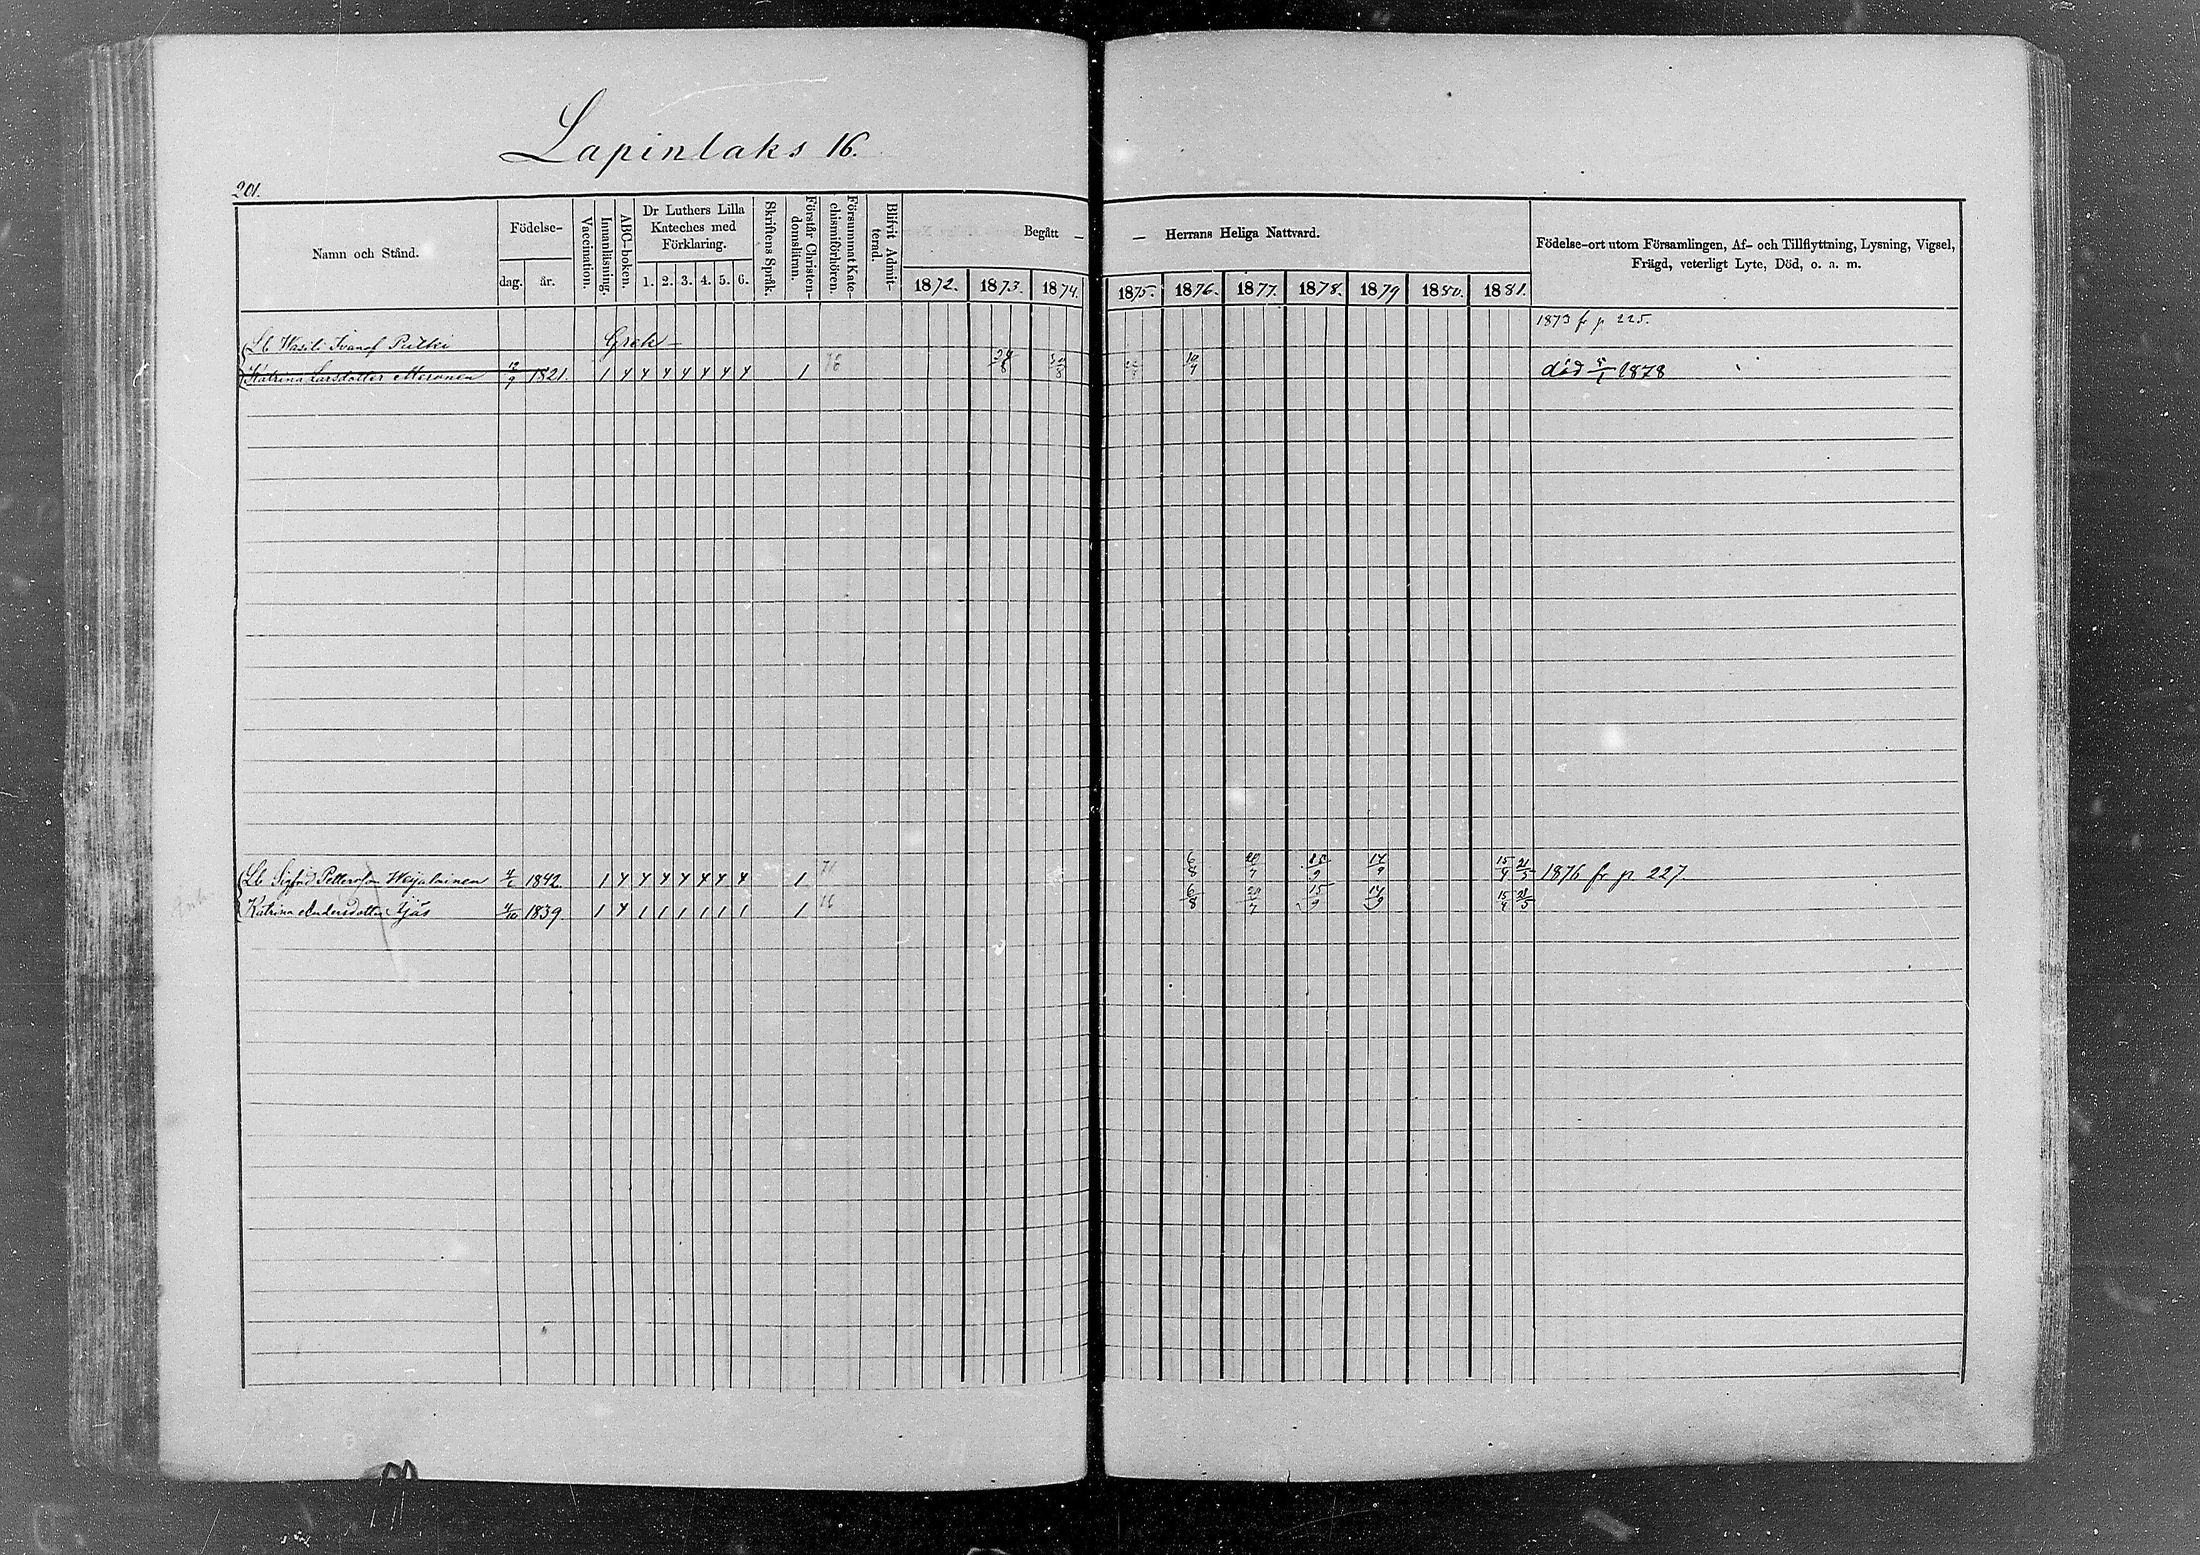 Lapinlaks 16.
201.
Namn och Stånd.
Födelse-
dag. år.
Vaccination.
Innanläsning.
ABC-boken.
Dr Luthers Lilla
Kateches med
Förklaring.
1. 2. 3. 4. 5. 6.
Skriftens Språk.
Förstår Christen-
domsläran.
Försummat Kate-
chismiförhören.
Blifvit Admit-
terad.
Begått — — Herrans Heliga Nattvard.
1872. 1873. 1874. 1875. 1876. 1877. 1878. 1879 1880. 1881.
Födelse-ort utom Församlingen, Af- och Tillflyttning, Lysning, Vigsel,
Frägd, veterligt Lyte, Död, o. a. m.
1873 fr p 225.
Lb Wasili Ivanof Pulki Grek —
Katrina Larsdotter Meronen 1821. 1 4 4 4 4 4 4 4 1 76 19/7 död 1878
Lb Sigfrid Pettersson Weijalainen 1842. 1 4 4 4 4 4 4 4 1 6/8 20/7 14/9 15/4 21/5 1876 fr p 227.
Katrina Andersdotter Äjäs 4/10 1839. 1 4 1 1 1 1 1 1 1 6/8 20/7 15/9 14/9 15/4 21/5